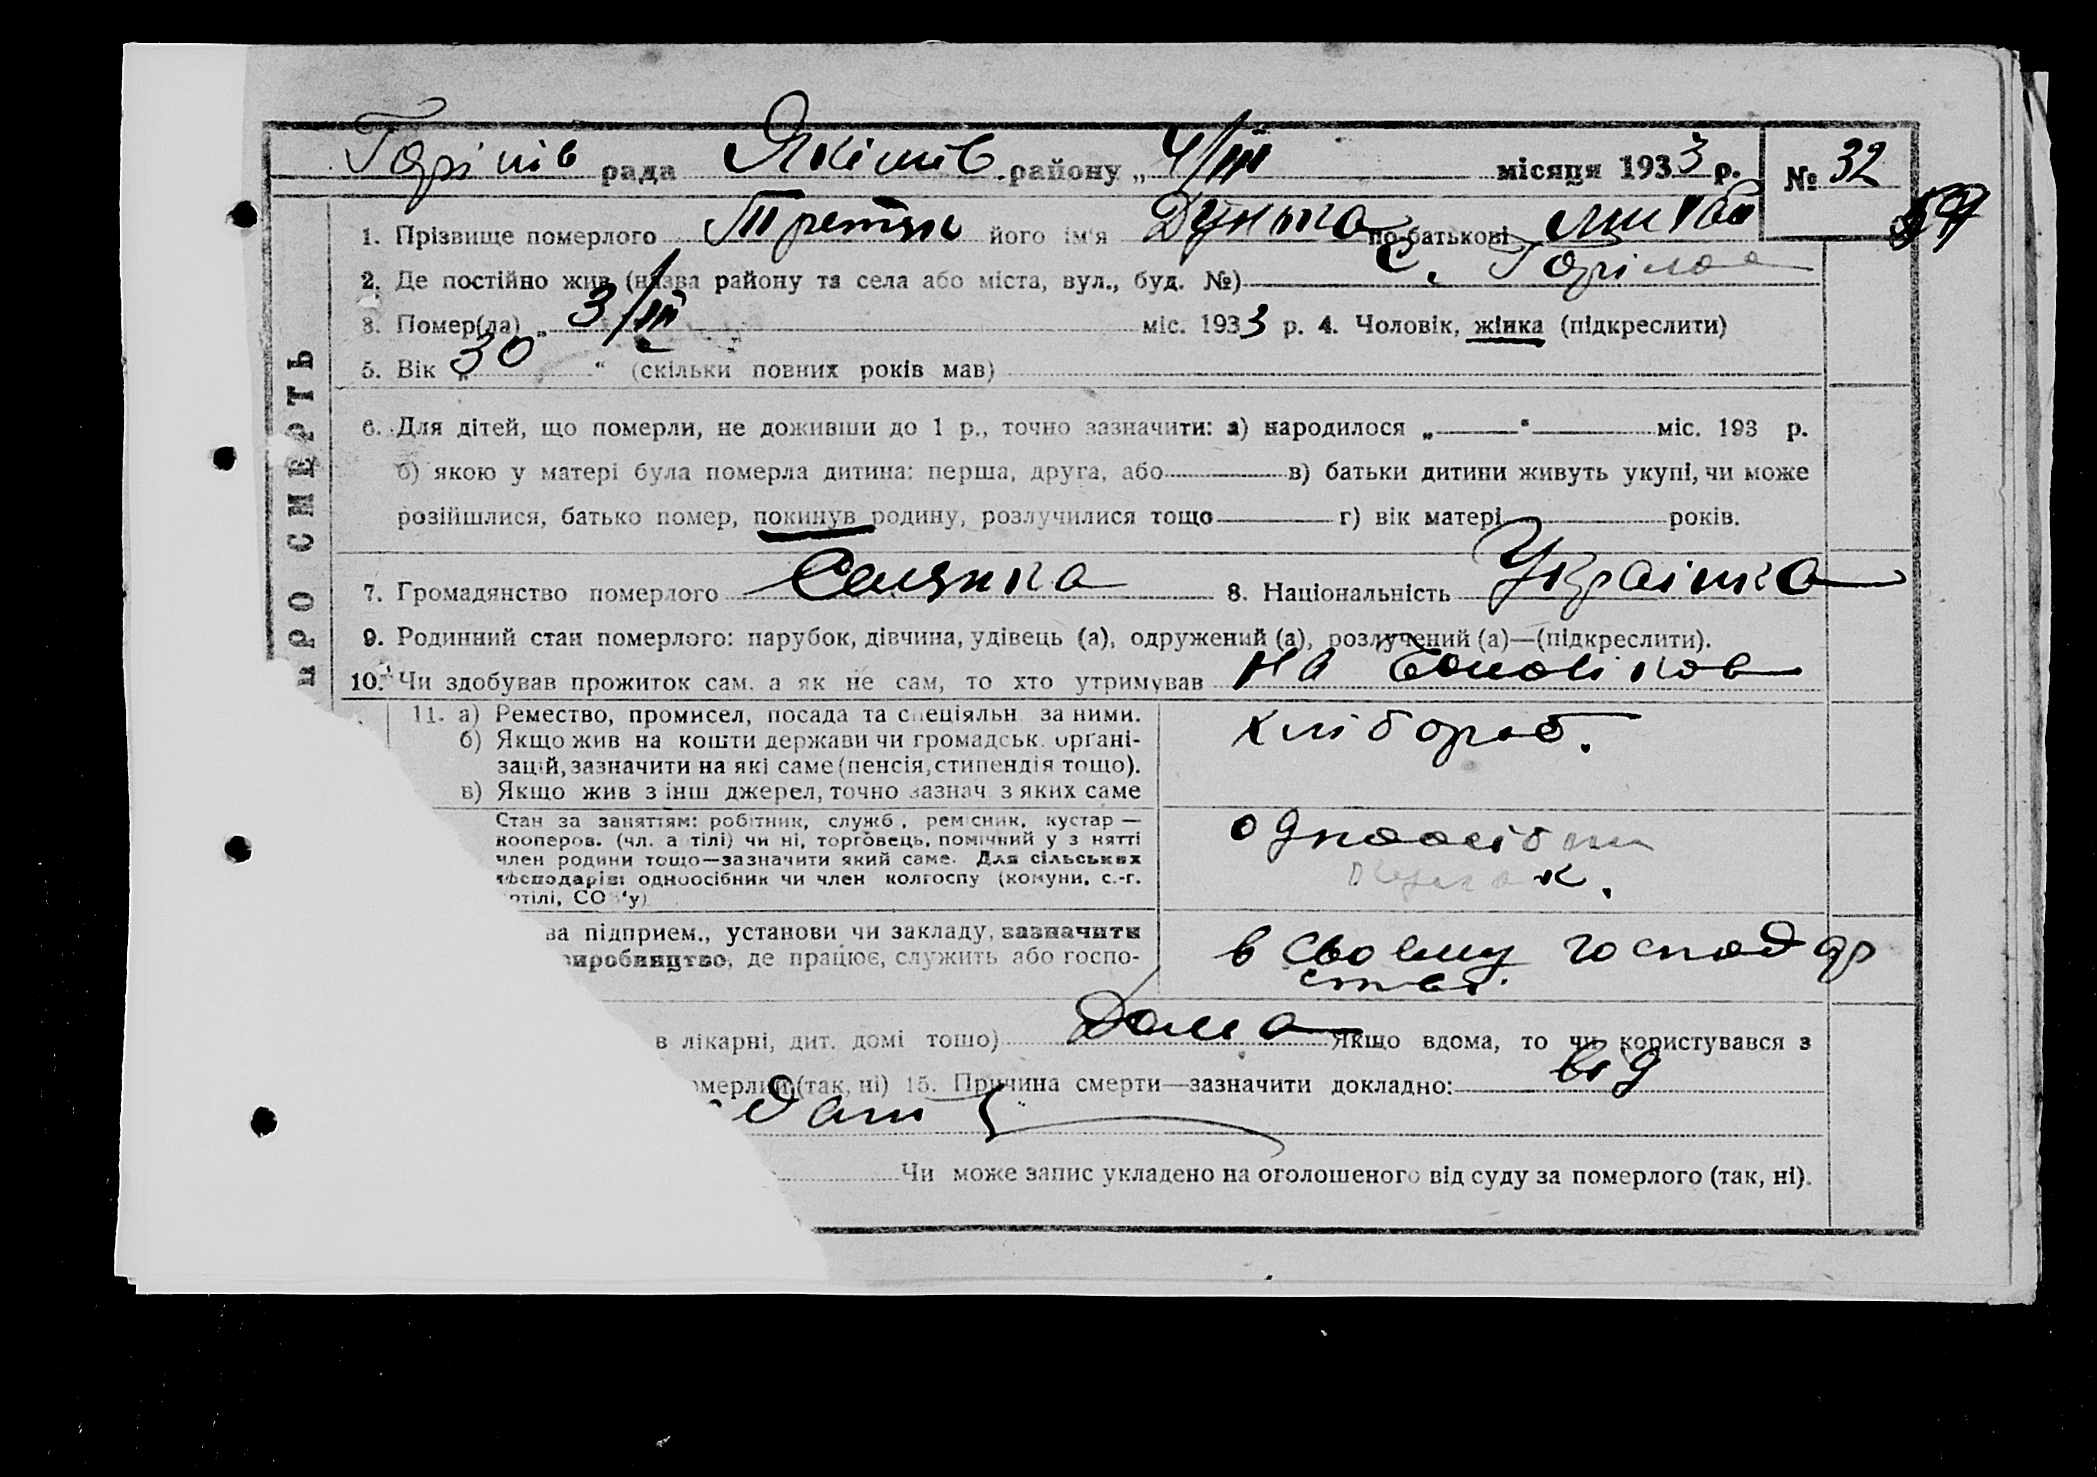 Горіпів рада Якімів. району „ 4/III місяця 1933 р. № 32
59
1. Прізвище померлого Третяк його ім'я Дунька по батькові
2. Де постійно жив (назва району та села або міста, вул., буд. №) с.
3. Помер(ла) „ 3/III міс. 1933 р. 4. Чоловік, жінка (підкреслити)
5. Вік „ 30 “ (скільки повних років мав)
6. Для дітей, що померли, не доживши до 1 р., точно зазначити: а) народилося „ “ міс. 193 р.
б) якою у матері була померла дитина: перша, друга, або в) батьки дитини живуть укупі, чи може
розійшлися, батько помер, покинув родину, розлучилися тощо г) вік матері років.
7. Громадянство померлого Селянка 8. Національність Українка
9. Родинний стан померлого: парубок, дівчина, удівець (а), одружений (а), розлучений (а)—(підкреслити).
10. Чи здобував прожиток сам, а як не сам, то хто утримував на
11. а) Ремество, промисел, посада та спеціяльн за ними.
б) Якщо жив на кошти держави чи громадськ. органі-
зацій, зазначити на які саме (пенсія, стипендія тощо).
в) Якщо жив з інш джерел, точно зазнач з яких саме
хлібороб.
Стан за заняттям: робітник, служб, ремісник, кустар —
кооперов. (чл. а тілі) чи ні, торговець, помічний у з нятті
член родини тощо—зазначити який саме. Для сільських
господарів: одноосібник чи член колгоспу (комуни, с.-г.
ртілі, СО 'у)
одноосібни
к.
ва підприєм., установи чи закладу, зазначити
виробництво, де працює, служить або госпо-
в своему господар
стві.
в лікарні, дит. домі тощо) Дома Якщо вдома, то чи користувався з
омерлий (так, ні) 15. Причина смерти—зазначити докладно: від
Чи може запис укладено на оголошеного від суду за померлого (так, ні).
ПРО СМЕРТЬ